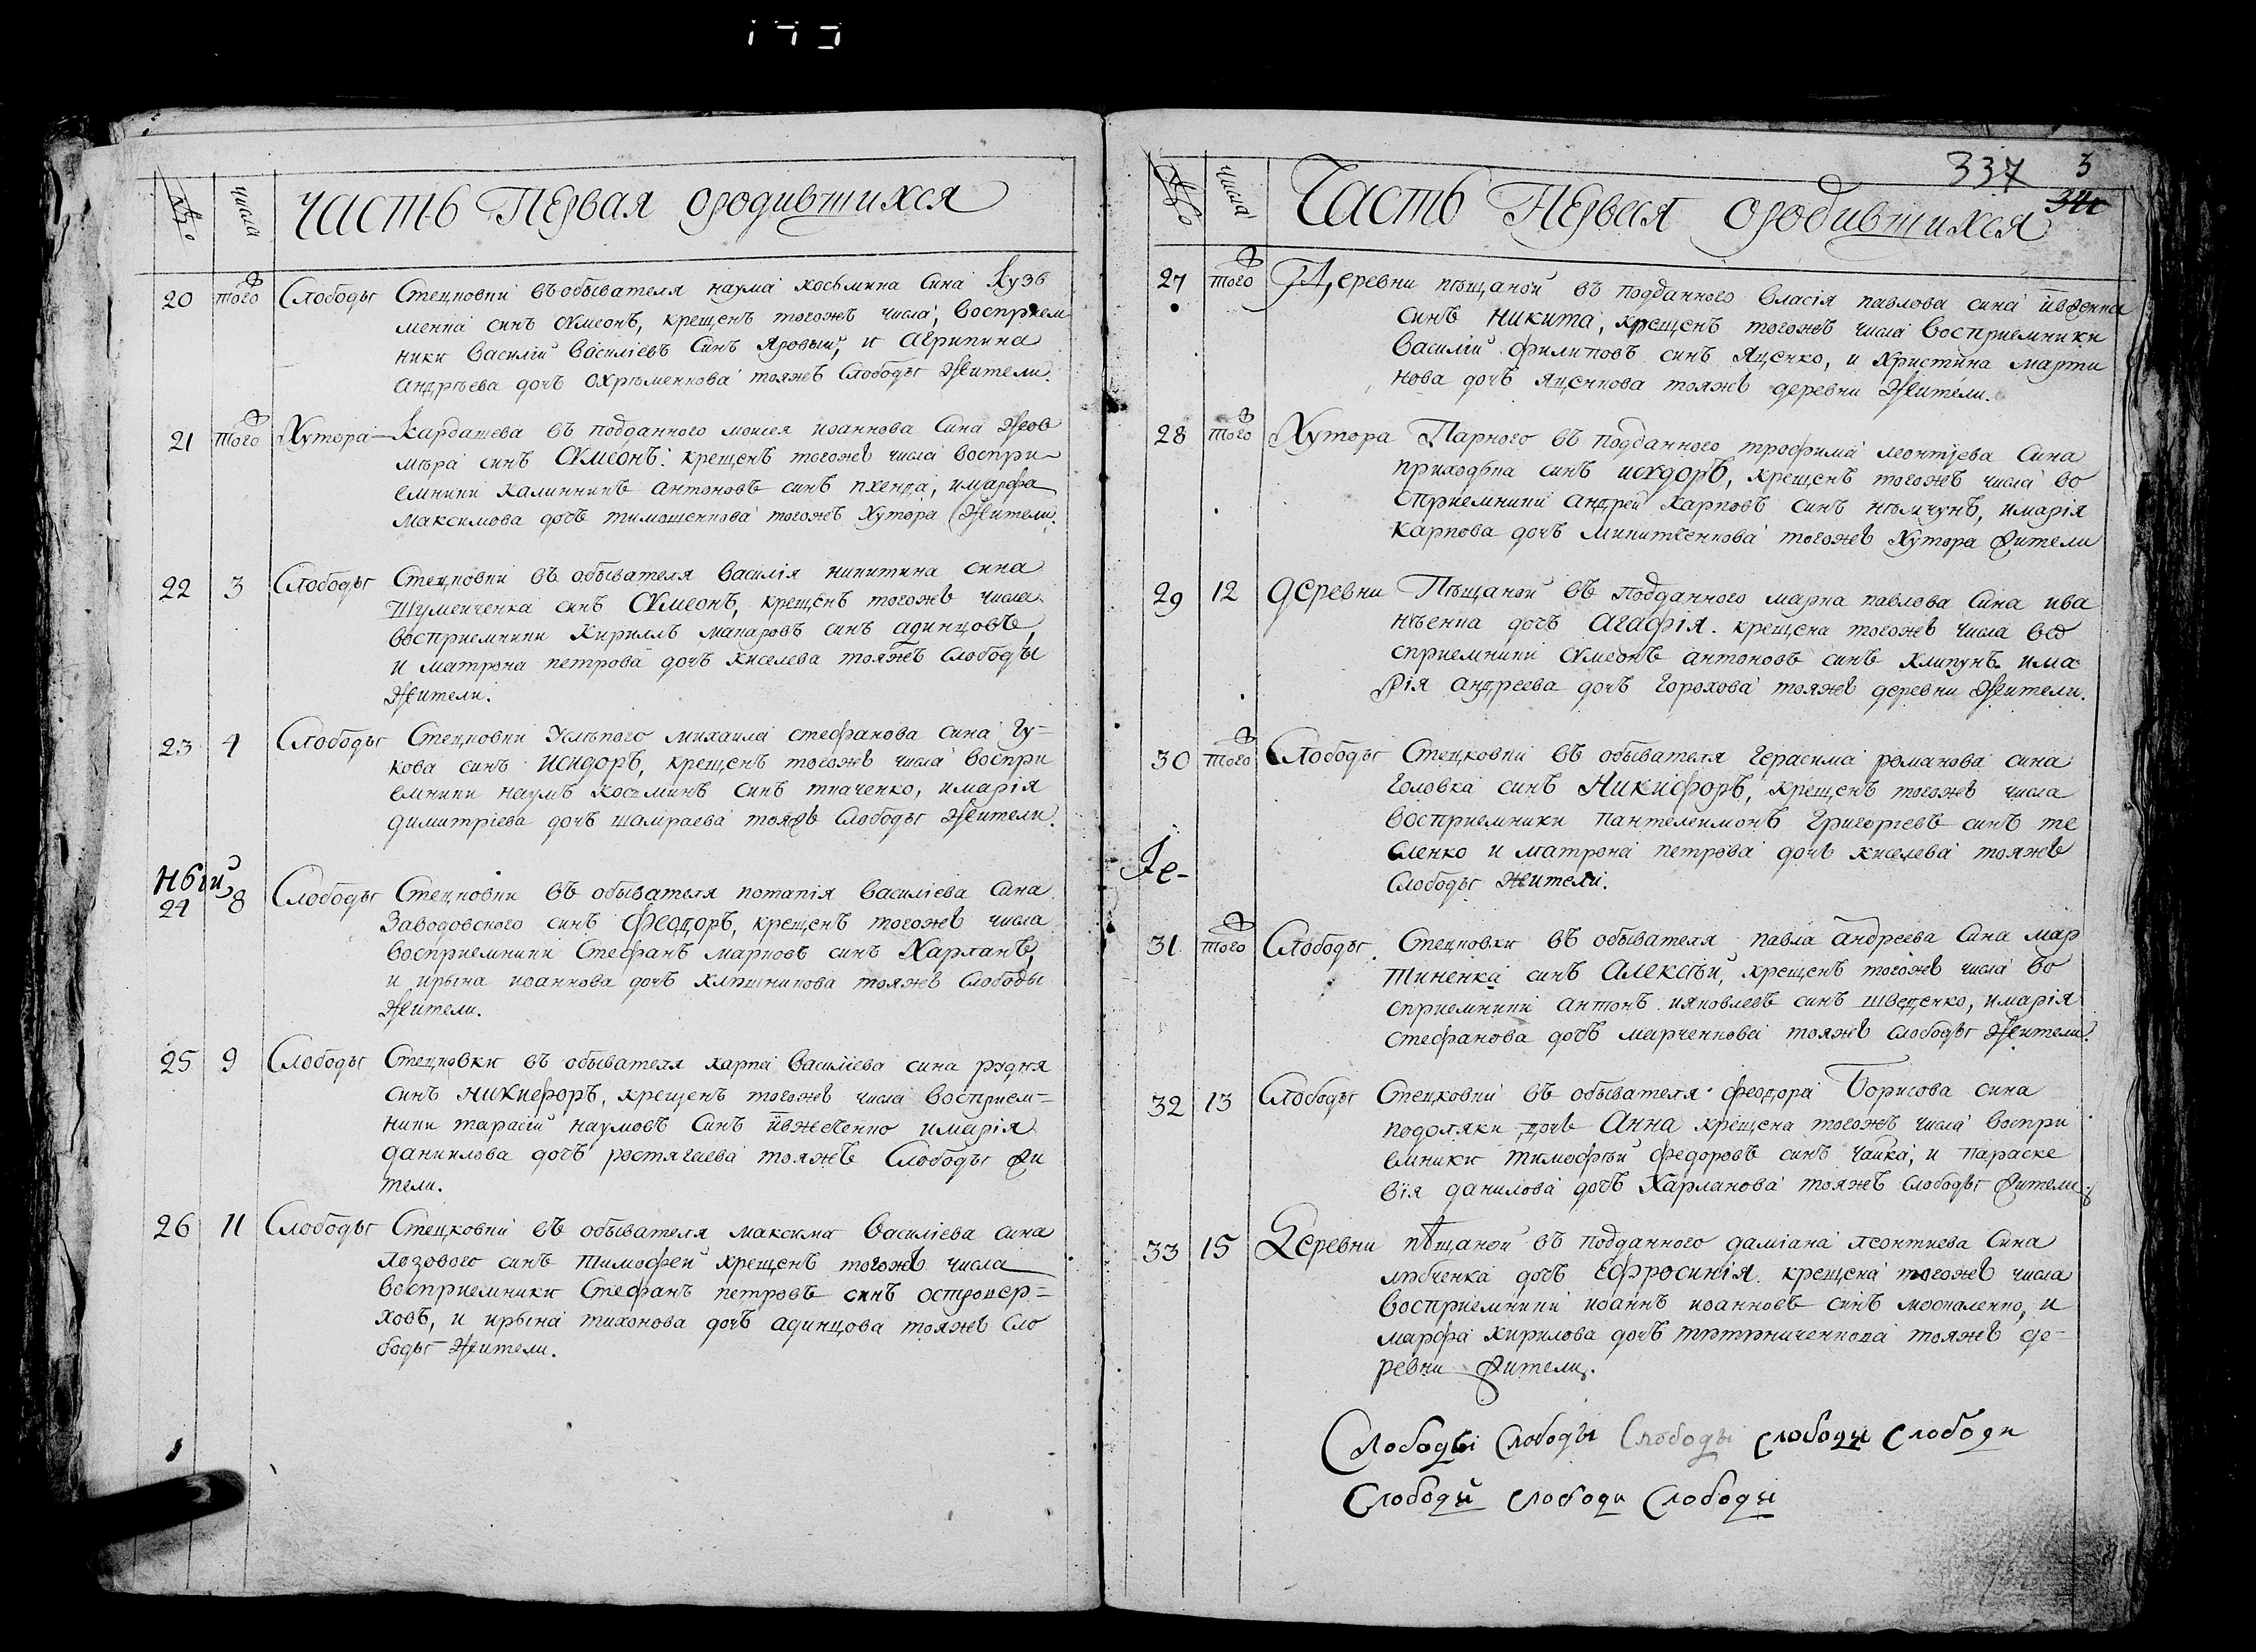 № числа Часть Первая ородившихся
20 тогоѳ Слободы Стецковки въ обывателя наума косьмина сина Кузь
менка синъ Сѵмеонъ, крещенъ тогожъ числа, восприем
ники василій василіевъ синъ яровый, и агрипина
андрѣева дочъ охрѣменкова тояжъ слободы жители.
21 тогоѳ Хутора Кардашева въ подданного моисея иоаннова сина жов
мѣра синъ Сѵмеонъ: крещенъ тогожъ числа воспри-
емники калинникъ антоновъ синъ , имарфа
максимова дочъ тимошенкова тогожъ хутора жители.
22 3 Слободы Стецковки въ обывателя василія никитина сина
Шумейченка синъ Сѵмеонъ, крещенъ тогожъ числа
восприемники кириллъ макаровъ синъ адинцовъ,
и матрона петрова дочъ киселева тояжъ слободы
жители.
23 4 Слободы Стецковки михаила стефанова сина Гу-
кова синъ Исидоръ, крещенъ тогожъ числа воспри
емники наумъ косьминъ синъ ткаченко, имарія
димитріева дочъ шамраева тояжъ слободы жители.
ный
24 8 Слободы Стецковки въ обывателя потапія василіева сина
Заводовского синъ Феодоръ, крещенъ тогожъ числа
восприемники Стефанъ марковъ синъ Харланъ,
и ирына иоаннова дочъ тояжъ слободы
жители.
25 9 Слободы Стецковки въ обывателя карпа василіева сина рэдня
синъ никифоръ, крещенъ тогожъ числа восприем-
ники тарасій наумовъ синъ ивженко имарія
даниилова дочъ ростягаева тояжъ Слободы жи
тели.
26 11 Слободы Стецковки въ обывателя максима василіева сина
лозового синъ тимофей крещенъ тогожъ числа
восприемники Стефанъ петровъ синъ островер-
ховъ, и ирына тихонова дочъ адинцова тояжъ Сло
боды жители.
337 3
№ числа Часть Первая ородившихся
27 тогоѳ Деревни пѣщаной въ подданного власія павлова сина
синъ никита, крещенъ тогожъ числа восприемники
василій филиповъ синъ яценко, и христина марти
нова дочъ яценкова тояжъ деревни жители.
28 тогоѳ Хутора Парного въ подданного трофима леонтіева сина
приходька синъ исѵдоръ, крещенъ тогожъ числа во
сприемники андрей карповъ синъ нѣмчунъ, имарія
карпова дочъ микитченкова тогожъ хутора жители
29 12 деревни Пѣщаной въ подданного марка павлова сина ива
нѣенка дочъ Агафія. крещена тогожъ числа во
сприемники сѵмеонъ антоновъ синъ клипунъ има
рія андреева дочъ горохова тояжъ деревни жители.
30 тогоѳ Слободы Стецковки въ обывателя герасима романова сина
головка синъ Никифоръ, крещенъ тогожъ числа
восприемники пантелеимонъ григоріевъ синъ те
сленко и матрона петрова дочъ киселева тояжъ
слободы жители.
Ге-
31 тогоѳ Слободы Стецковки въ обывателя павла андреева сина мар
тиненка синъ Алексѣй, крещенъ тогожъ числа во
сприемники антонъ ияковлевъ синъ шведенко, имарія
стефанова дочъ марченкова тояжъ слободы жители.
32 13 Слободы Стецковки въ обывателя феодора Борисова сина
подоляки дочъ Анна крещена тогожъ числа воспри
емники тимофѣй федоровъ синъ чайка, и параске
вія данилова дочъ харланова тояжъ слободы жители.
33 15 Деревни пѣщаной въ подданного даміана леонтиева сина
дочъ Ефросинія. крещена тогожъ числа
восприемники иоаннъ иоанновъ синъ москаленко, и
марфа кирилова дочъ тояжъ де-
ревни жители.
Слободы Слободы Слободы слободы Слободи
Слободы Слободи Слободы